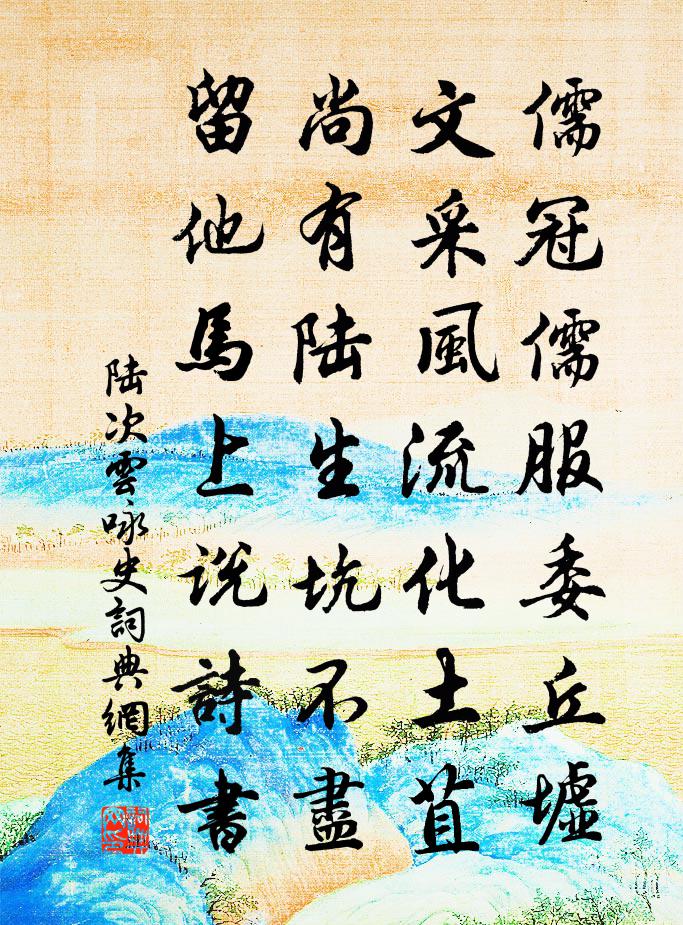 儒冠儒服委丘墟
文采風流化土苴
尚有陸生坑不盡
留他馬上説詩書
陸次雲咏史詞典網集